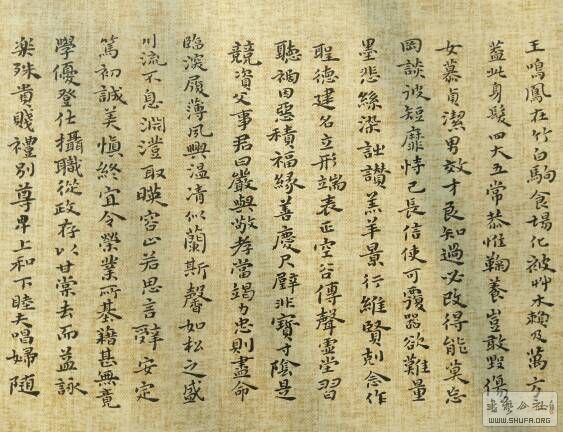 王鳴鳳在竹白駒食場化被艸木賴及萬方
蓋此身髮四大五常恭惟鞠養豈敢毀傷
女慕貞潔男效才良知過必改得能莫忘
罔談彼短靡恃己長信使可覆器欲難量
墨悲絲染詩讚羔羊景行維賢剋念作
聖德建名立形端表正空谷傳聲虛堂習
聽禍因惡積福緣善慶尺璧非寶寸陰是
競資父事君曰嚴與敬孝當竭力忠則盡命
臨深履薄夙興溫凊似蘭斯馨如松之盛
川流不息淵澄取暎容止若思言辭安定
篤初誠美慎終宜令榮業所基藉甚無竟
學優登仕攝職從政存以甘棠去而益詠
樂殊貴賤禮別尊卑上和下睦夫唱婦隨
書法公社
WWW.SHUFA.ORG